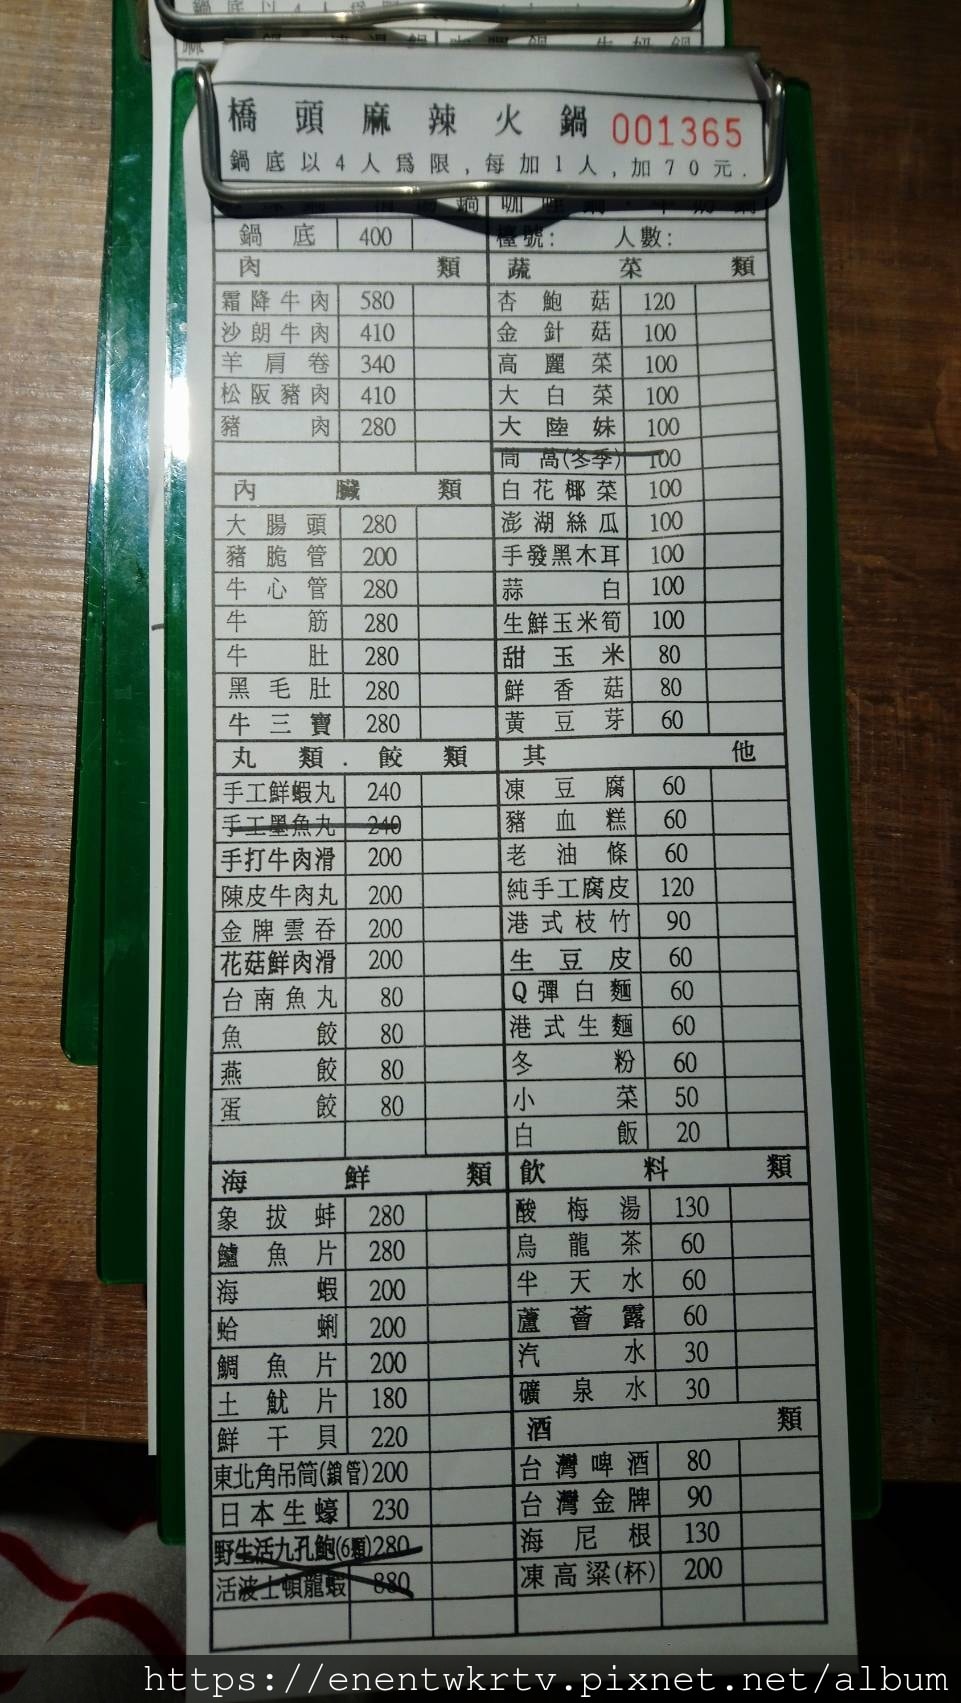 鍋底以4人爲限
橋頭麻辣火鍋 001365
鍋底以4人爲限,每加1人,加70元.
鍋底 400
檯號: 人數:
肉類
霜降牛肉 580
沙朗牛肉 410
羊肩卷 340
松阪豬肉 410
豬肉 280
內臟類
大腸頭 280
豬脆管 200
牛心管 280
牛筋 280
牛肚 280
黑毛肚 280
牛三寶 280
丸類.餃類
手工鮮蝦丸 240
手工墨魚丸 240
手打牛肉滑 200
陳皮牛肉丸 200
金牌雲吞 200
花菇鮮肉滑 200
台南魚丸 80
魚餃 80
燕餃 80
蛋餃 80
海鮮類
象拔蚌 280
鱸魚片 280
海蝦 200
蛤蜊 200
鯛魚片 200
土魠片 180
鮮干貝 220
東北角吊筒(鎖管) 200
日本生蠔 230
野生活九孔鮑(6顆) 280
活波士頓龍蝦 880
蔬菜類
杏鮑菇 120
金針菇 100
高麗菜 100
大白菜 100
大陸妹 100
茼萵(冬季) 100
白花椰菜 100
澎湖絲瓜 100
手發黑木耳 100
蒜白 100
生鮮玉米筍 100
甜玉米 80
鮮香菇 80
黃豆芽 60
其他
凍豆腐 60
豬血糕 60
老油條 60
純手工腐皮 120
港式枝竹 90
生豆皮 60
Q彈白麵 60
港式生麵 60
冬粉 60
小菜 50
白飯 20
飲料類
酸梅湯 130
烏龍茶 60
半天水 60
蘆薈露 60
汽水 30
礦泉水 30
酒類
台灣啤酒 80
台灣金牌 90
海尼根 130
凍高粱(杯) 200
https://enentwkrtv.pixnet.net/album